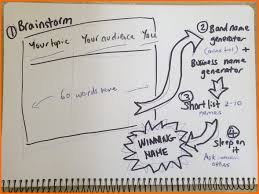 ① Brainstorm
Your topic Your audience You
60 words here
② Band name
generator
+
Business name
generator
③ Shortlist 2-10
names
④
Sleep on
it
Ask
WINNING
NAME